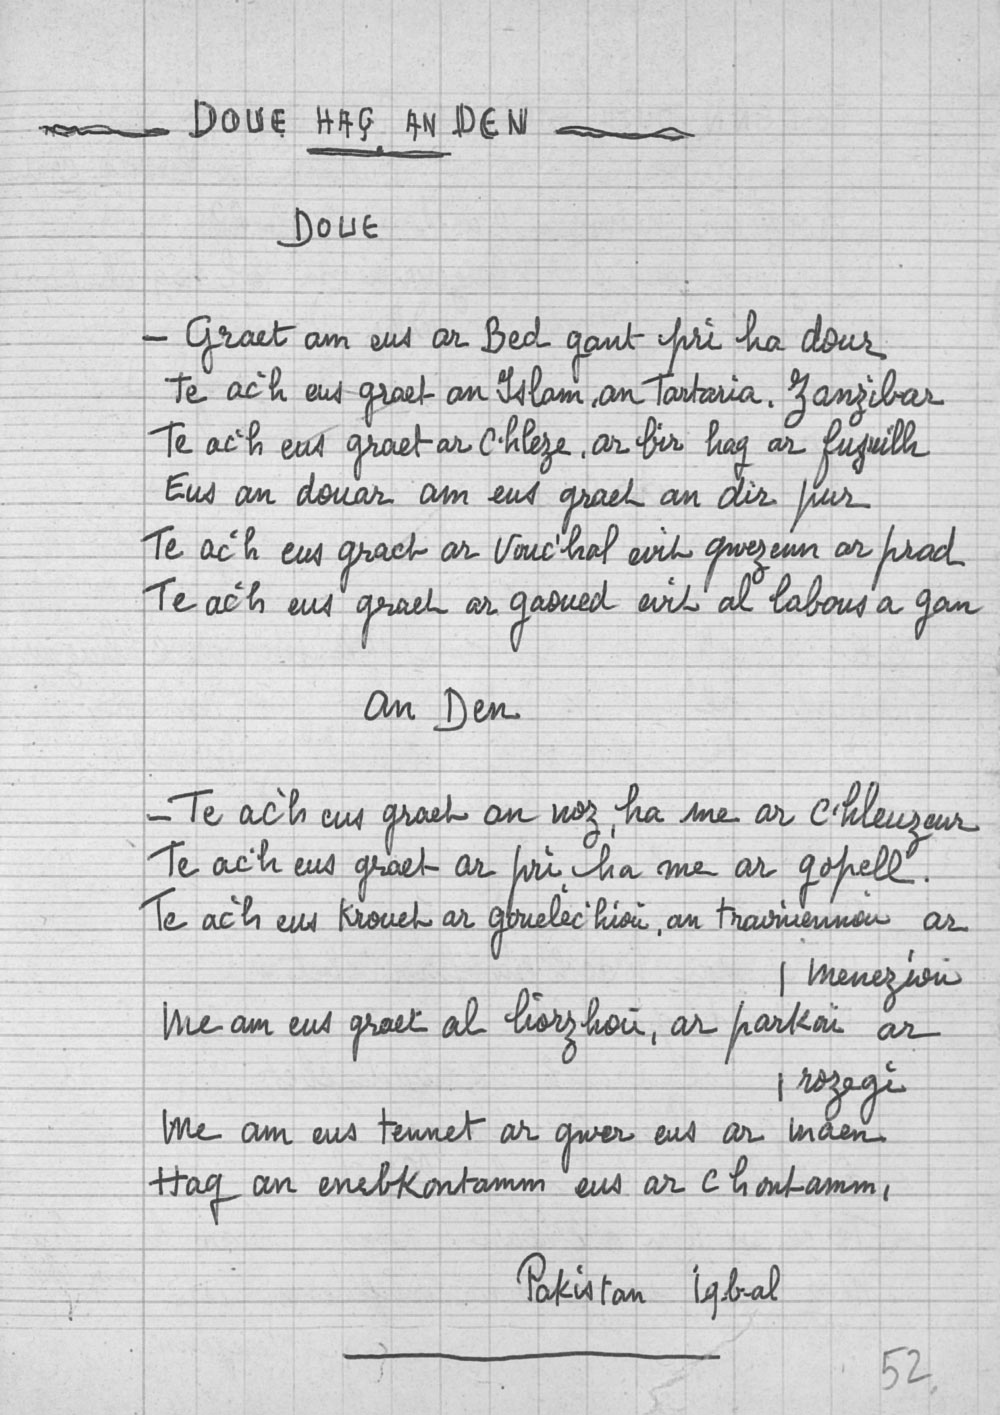 DOUE HAG AN DEN
DOUE
– Graet am eus ar Bed gant pri ha dour
Te ac'h eus graet an Islam, an Tartaria, Zanzibar
Te ac'h eus graet ar C'hleze, ar bir hag ar fuzuilh
Eus an douar am eus graet an dir pur
Te ac'h eus graet ar Vouc'hal evit gwezenn ar prad
Te ac'h eus graet ar gaoued evit al labous a gan
An Den
– Te ac'h eus graet an noz, ha me ar C'hleuzeur
Te ac'h eus graet ar pri ha me ar gopell.
Te ac'h eus Krouet ar gouelec'hioù, an traoniennoù ar
menezioù
Me am eus graet al liorzhoù, ar parkoù ar
rozegi
Me am eus tennet ar gwer eus ar maen
Hag an enebkontamm eus ar c'hontamm,
Pakistan Iqbal
52.